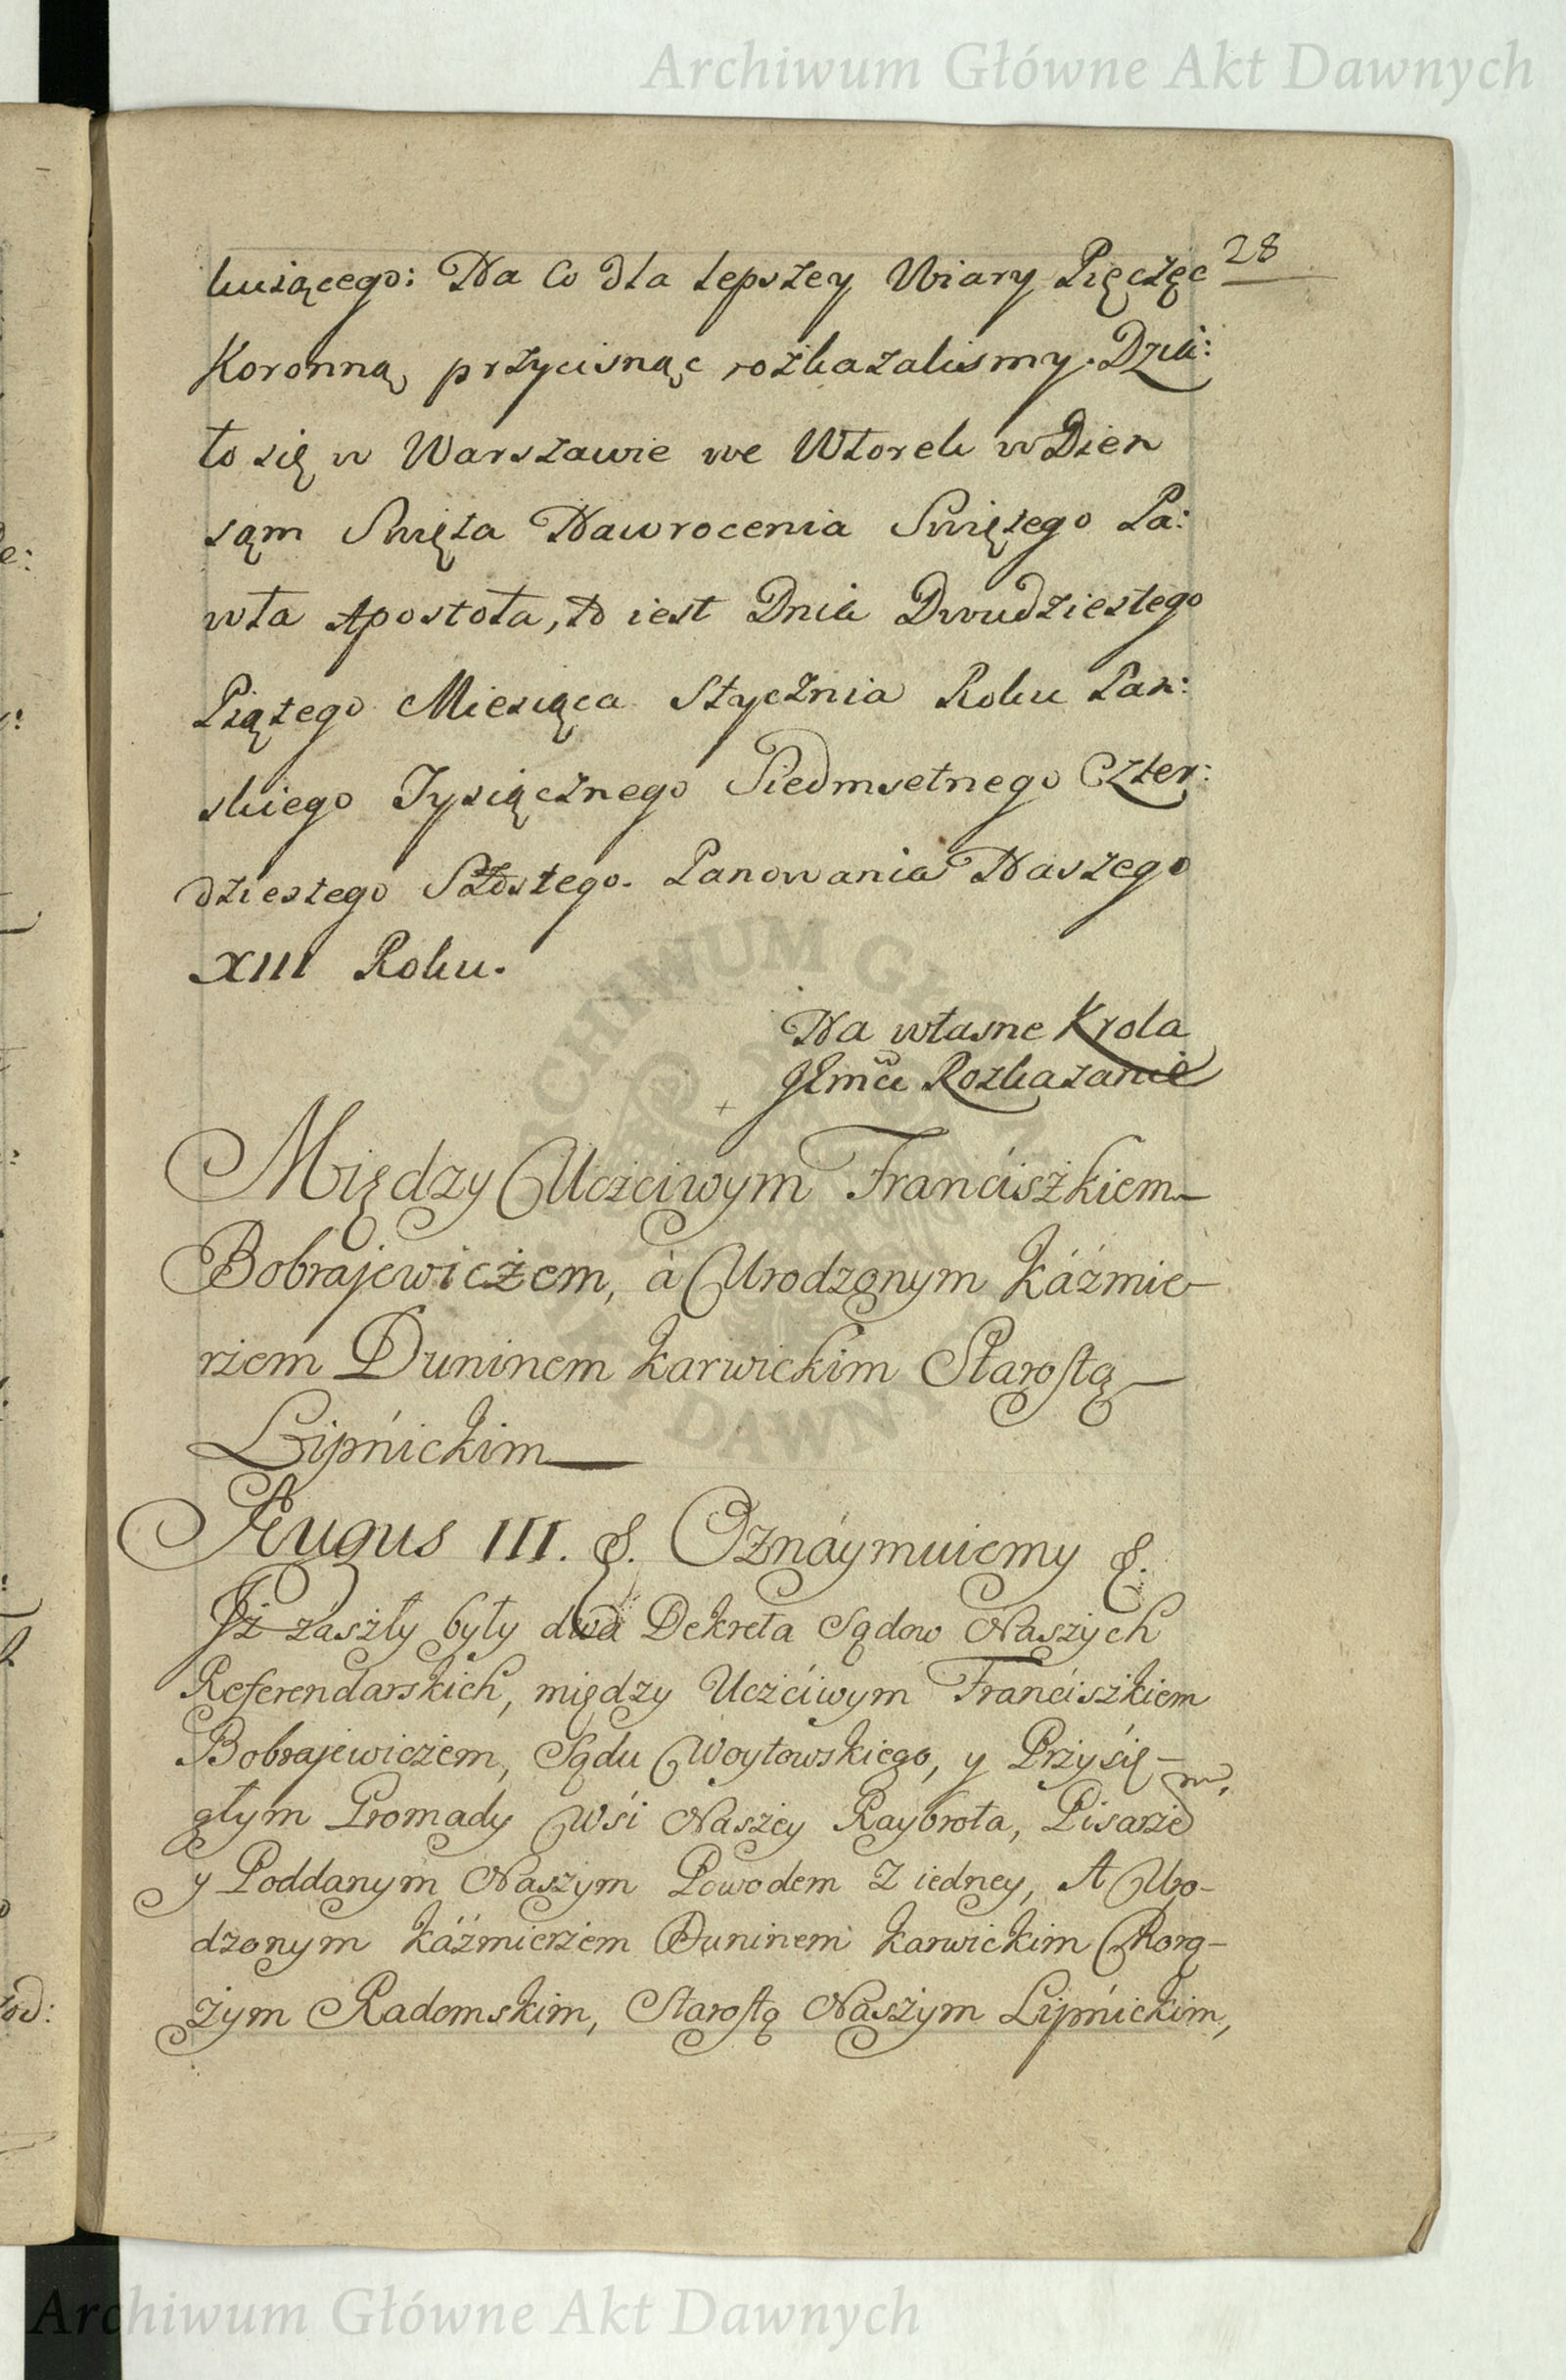 Archiwum Główne Akt Dawnych
28
kuiącego: Na Co dla lepszey Wiary Pięczęc
Koronną przycisnąc rozkazalismy. Dzia:
ło się w Warszawie we Wtorek w Dien
sąm Swięta Nawrocenia Swiętego Pa:
wła Apostoła, to iest Dnia Dwudziestego
Piątego Miesiąca Stycznia Roku Pan:
skiego Tysiącznego Siedmsetnego Czter:
dziestego Szostego. Panowania Naszego
XIII Roku.
Na własne Krola
JKmci Rozkazanie
Między Uczciwym Franciszkiem
Bobrajewiczem, à Urodzonym Káźmie-
rzem Duninem Karwickim Starostą
Lipnickim
Augus III. &. Oznáymuiemy &.
Iż zaszły były dwa Dekreta Sądow Naszych
Referendarskich, między Uczciwym Franciszkiem
Bobrajewiczem, Sądu Woytowskiego, y Przysię-
głym Gromady Wsi Naszey Raybrota, Pisarzem,
y Poddanym Naszym Powodem z iedney, A Uro-
dzonym Káźmierzem Duninem Karwickim Chorą-
żym Radomskim, Starostą Naszym Lipnickim,
Archiwum Główne Akt Dawnych